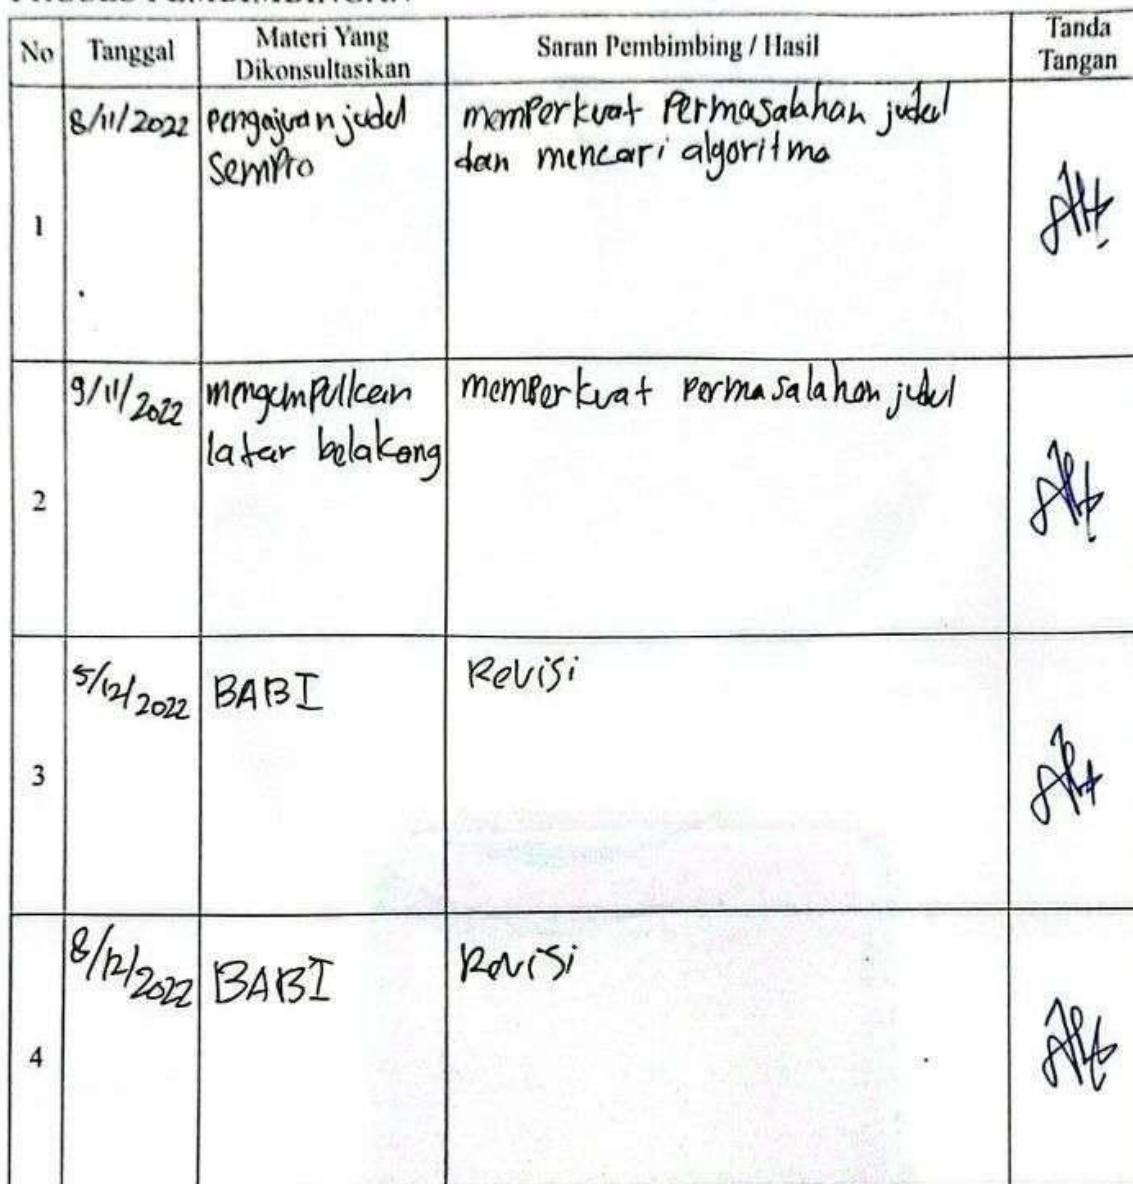 No Tanggal Materi Yang Dikonsultasikan Saran Pembimbing / Hasil Tanda Tangan
1 8/11/2022 pengajuan judul memperkuat permasalahan judul
sempro dan mencari algoritma
2 9/11/2022 mengumpulkan memperkuat permasalahan judul
latar belakang
3 5/12/2022 BAB I Revisi
4 8/12/2022 BAB I Revisi